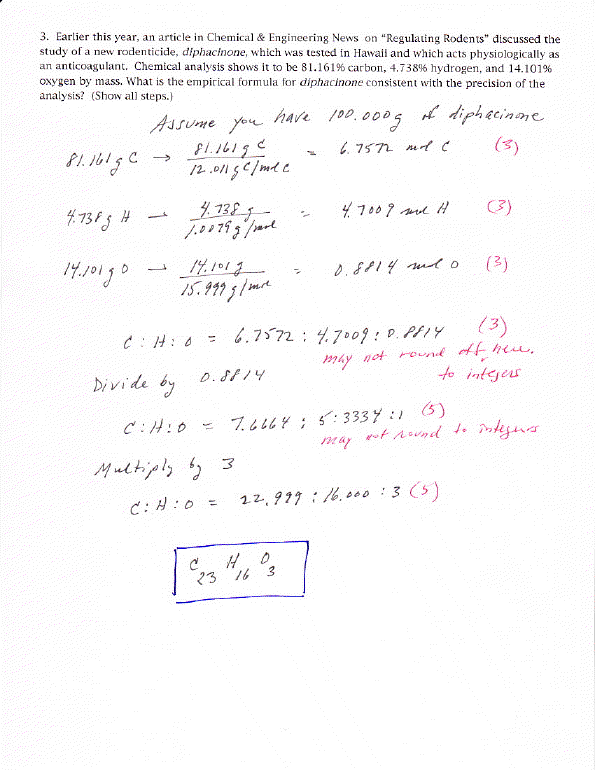 3. Earlier this year, an article in Chemical & Engineering News on "Regulating Rodents" discussed the
study of a new rodenticide, diphacinone, which was tested in Hawaii and which acts physiologically as
an anticoagulant. Chemical analysis shows it to be 81.161% carbon, 4.738% hydrogen, and 14.101%
oxygen by mass. What is the empirical formula for diphacinone consistent with the precision of the
analysis? (Show all steps.)
Assume you have 100.000g of diphacinone
81.161 g C → 81.161 g C / 12.011 g C/mol C = 6.7572 mol C (3)
4.738 g H → 4.738 g / 1.0079 g/mol = 4.7009 mol H (3)
14.101 g O → 14.101 g / 15.999 g/mol = 0.8814 mol O (3)
C : H : O = 6.7572 : 4.7009 : 0.8814 (3)
may not round off here.
to integers
Divide by 0.8814
C : H : O = 7.6664 : 5.3334 : 1 (5)
may not round to integers
Multiply by 3
C : H : O = 22.999 : 16.000 : 3 (5)
C23 H16 O3